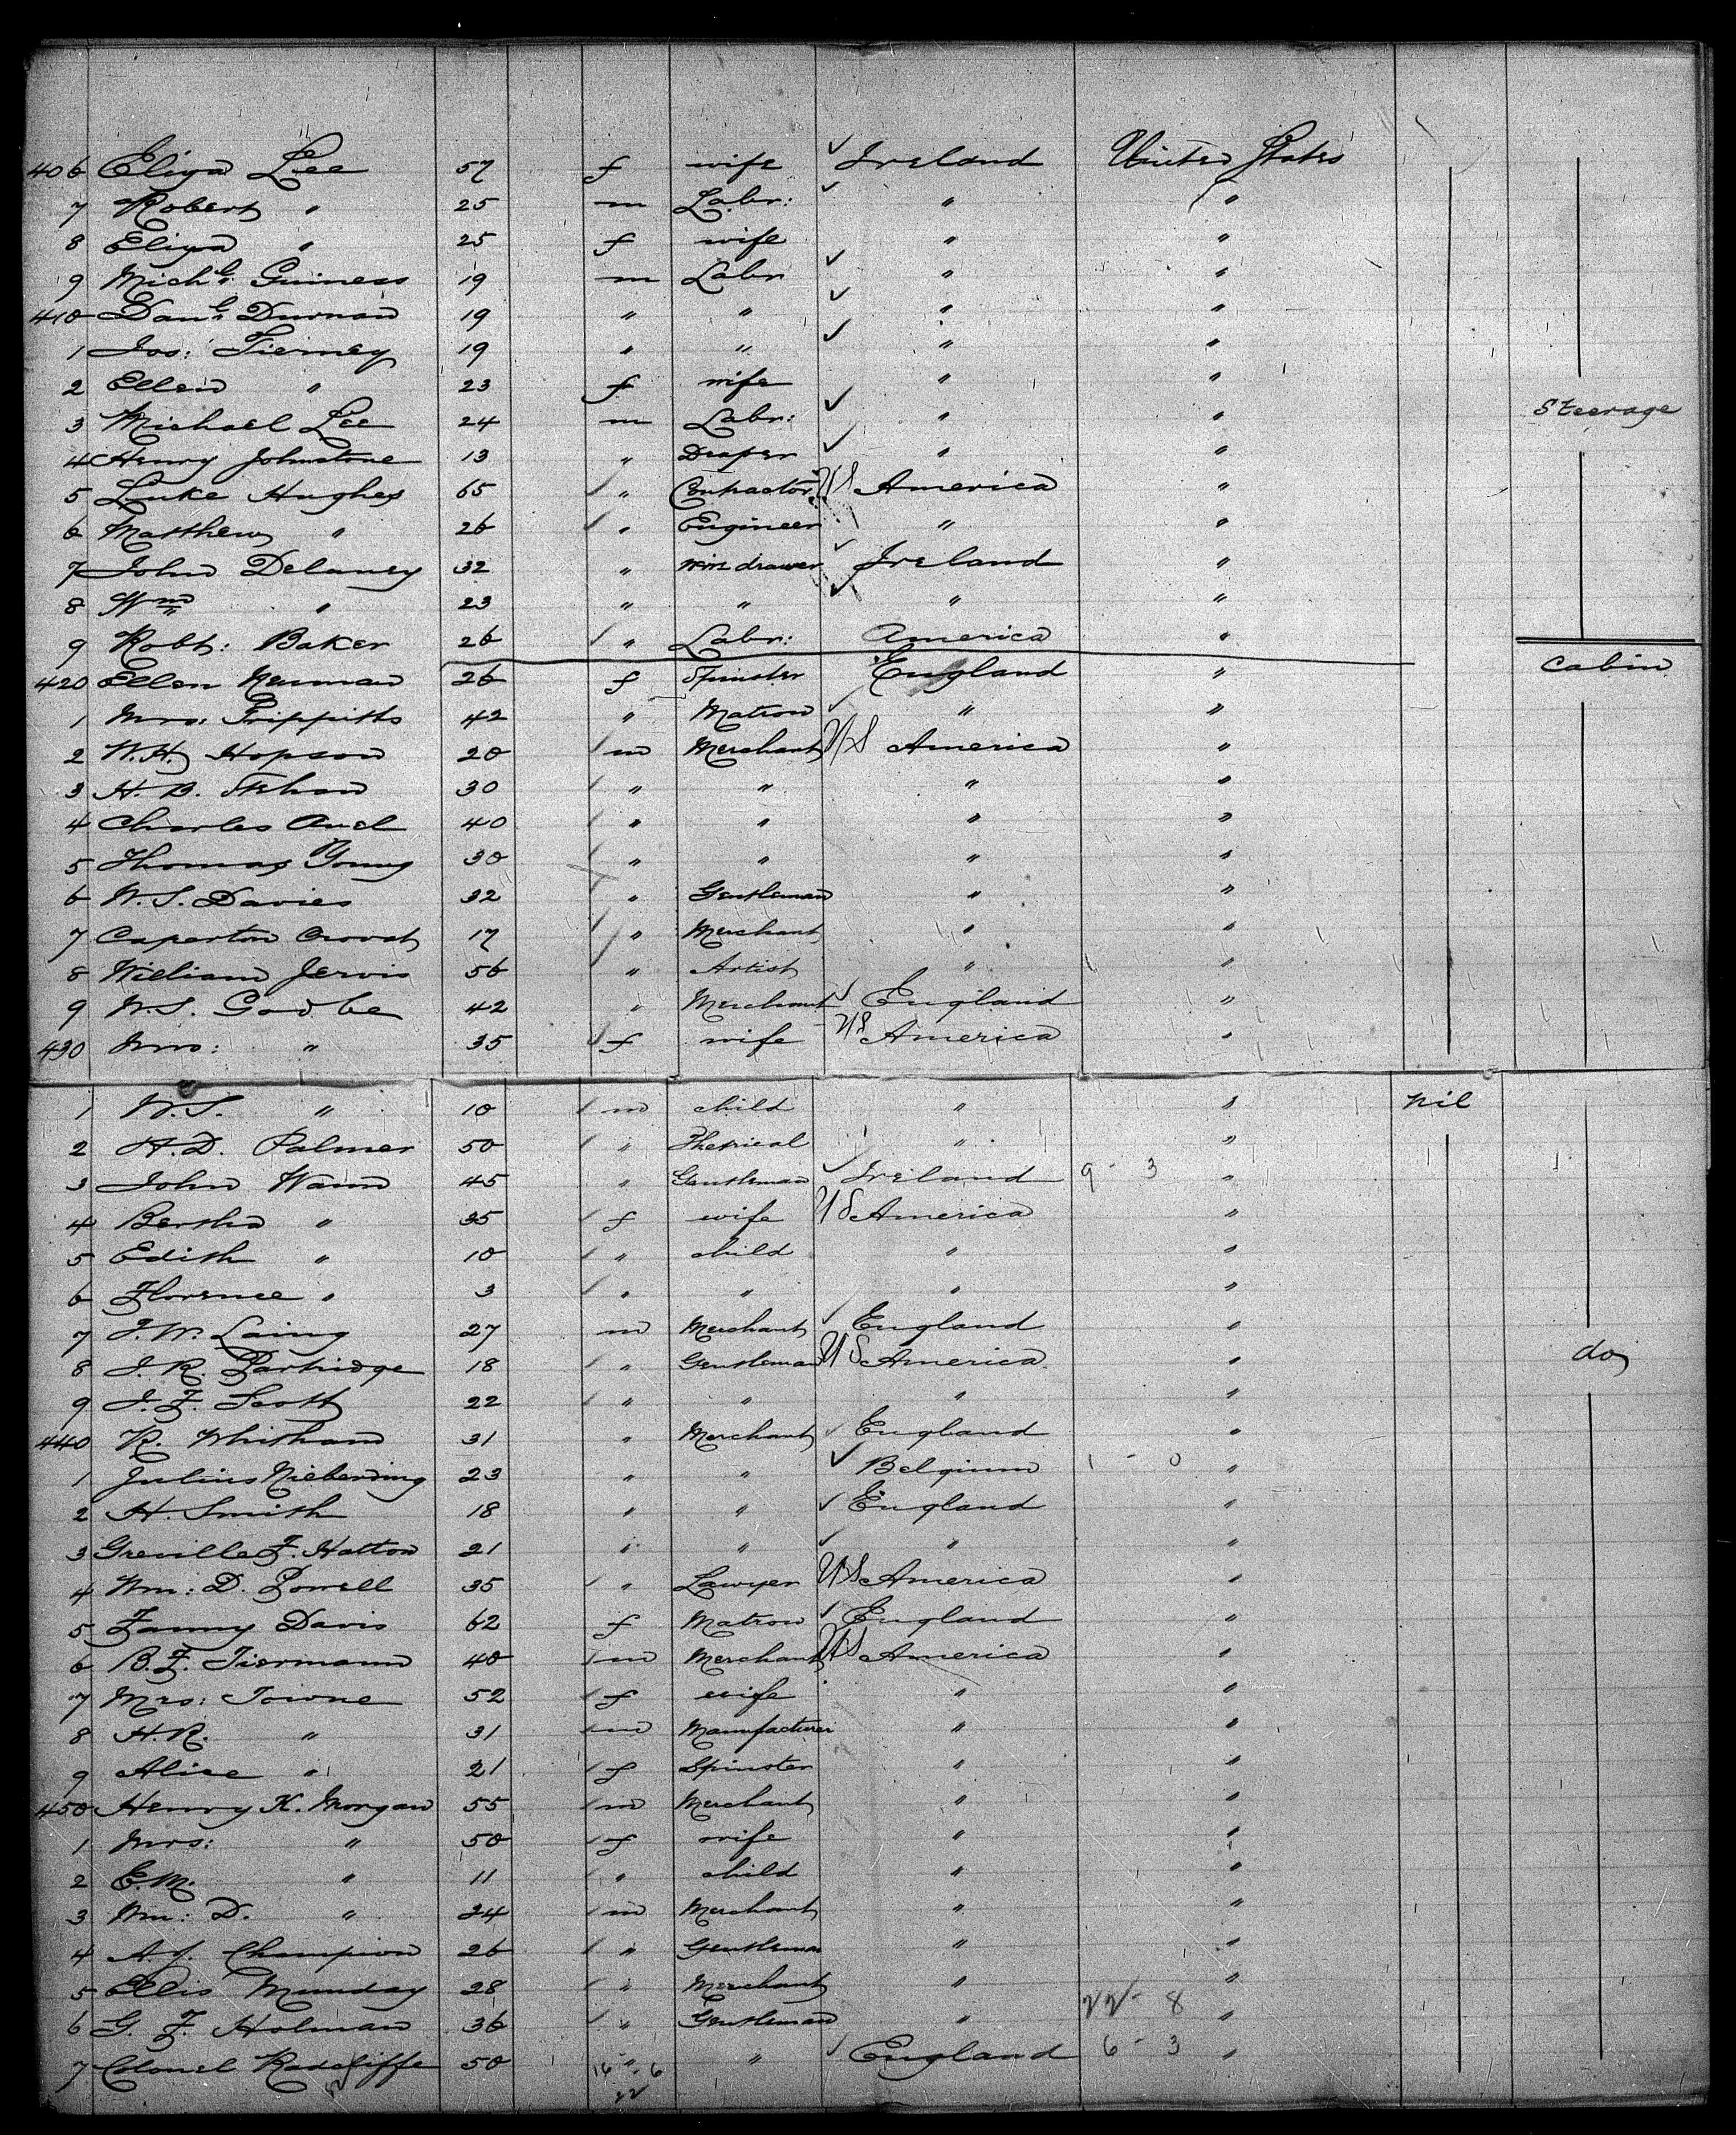 406 Eliza Lee 57 f wife ✓ Ireland United States
7 Robert " 25 m Labr: ✓ " "
8 Eliza " 25 f wife " "
9 Michl. Guiness 19 m Labr ✓ " "
410 Danl. Durnan 19 " " ✓ " "
1 Jos: Tierney 19 " " ✓ " "
2 Ellen " 23 f wife " "
3 Michael Lee 24 m Labr: ✓ " " Steerage
4 Henry Johnstone 13 " Draper ✓ " "
5 Luke Hughes 65 " Contractor US America "
6 Matthew " 26 " Engineer " "
7 John Delaney 32 " Wire drawer ✓ Ireland "
8 Wm " 23 " " ✓ " "
9 Robt: Baker 26 " Labr: America "
420 Ellen Newman 26 f Spinster England " Cabin
1 Mrs: Prippitts 42 " Matron ✓ " "
2 W.H. Hopson 20 m Merchant US America "
3 H. B. 30 " " " "
4 Charles Aud 40 " " " "
5 Thomas Young 30 " " " "
6 W.S. Davies 32 " Gentleman " "
7 Caperton 17 " Merchant " "
8 William Jervis 56 " Artist " "
9 W.S. Godbe 42 " Merchant ✓ England "
430 Mrs: " 35 f wife US America "
1 W.S. " 10 m child " " nil
2 H.D. Palmer 50 " Thetrical " "
3 John Wann 45 " Gentleman ✓ Ireland 9 - 3 "
4 Bertha " 35 f wife US America "
5 Edith " 10 " child " "
6 Florence " 3 " " " "
7 J.W. Laing 27 m Merchant ✓ England "
8 J. R. Partridge 18 " Gentleman US America " do
9 J. F. Scott 22 " " " "
440 R. Whitham 31 " Merchant ✓ England "
1 Julius Nieberding 23 " " ✓ Belgium 1 - 0 "
2 H. Smith 18 " " ✓ England "
3 Greville F. Hatton 21 " " ✓ " "
4 Wm: D. Powell 35 " Lawyer US America "
5 Fanny Davis 62 f Matron ✓ England "
6 B.F. Tiermann 40 m Merchant US America "
7 Mrs: Towne 52 f wife " "
8 H.R. " 31 m Manufacturer " "
9 Alice " 21 f Spinster " "
450 Henry K. Morgan 55 m Merchant " "
1 Mrs: " 50 f wife " "
2 E.M. " 11 " child " "
3 Wm: D. " 24 m Merchant " "
4 A.J. Champion 26 " Gentleman " "
5 Ellis Munday 28 " Merchant " "
6 G. F. Holman 36 " Gentleman " 22 - 8 "
7 Colonel Radcliffe 50 " " ✓ England 6 - 3 "
16 - 6
22